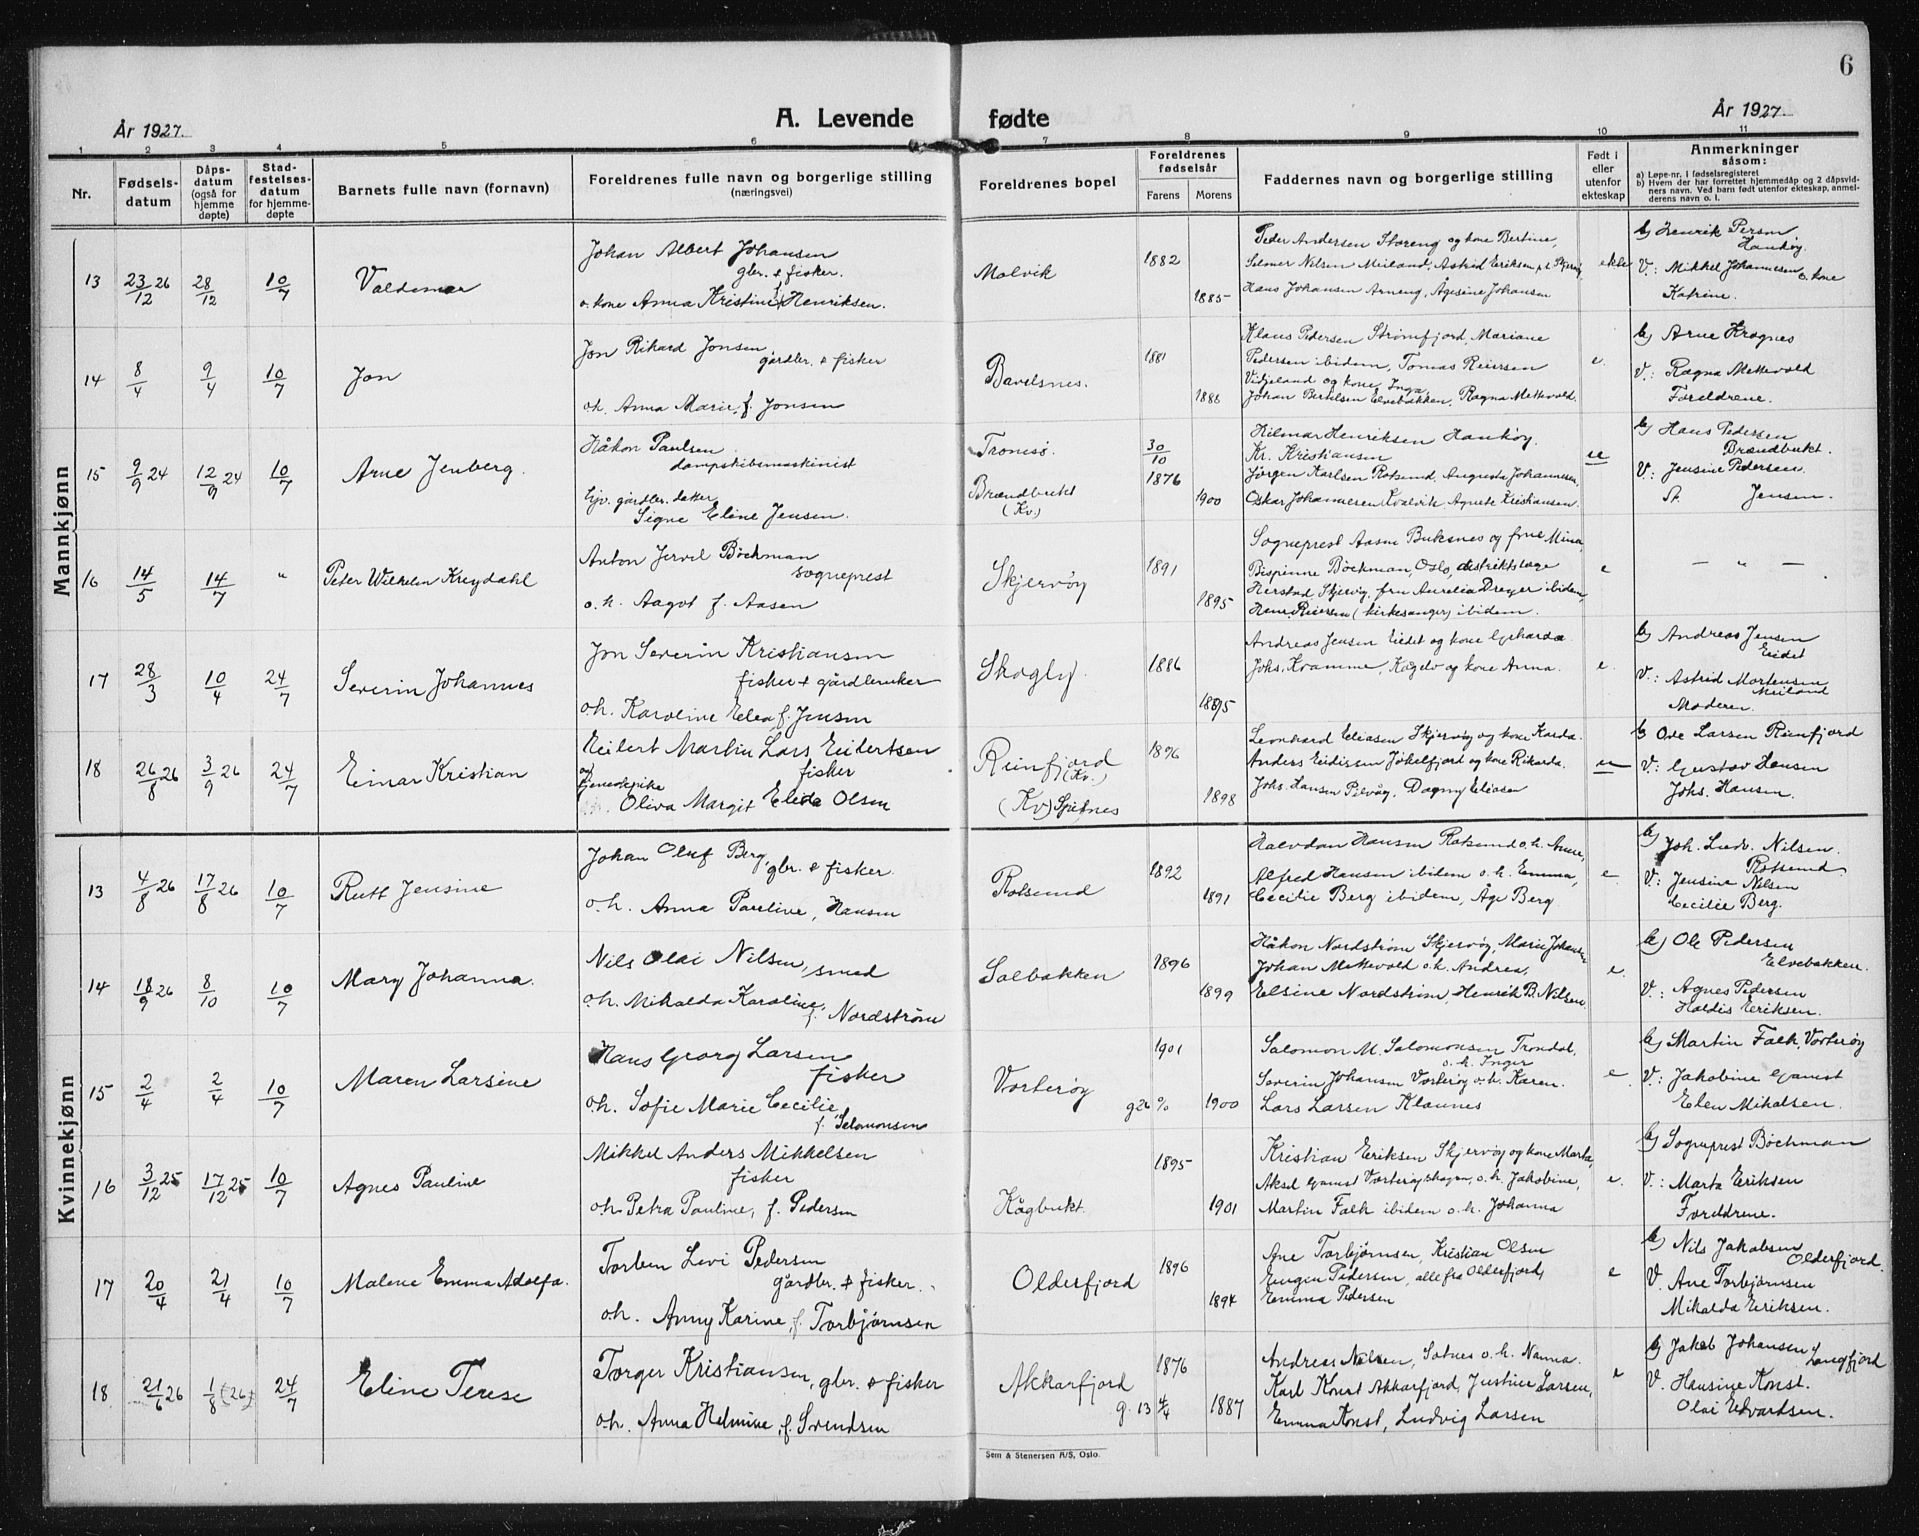 6
År 1927.
A. Levende
fødte
År 1927.
1 2 3 4 5 6 7 8 9 10 11
Nr.
Fødsels-
datum
Dåps-
datum
(også for
hjemme
døpte)
Stad-
festelses-
datum
for hjemme-
døpte
Barnets fulle navn (fornavn)
Foreldrenes fulle navn og borgerlige stilling
(næringsvei)
Foreldrenes bopel
Foreldrenes
fødselsår
Farens Morens
Faddernes navn og borgerlige stilling
Født i
eller
utenfor
ekteskap
Anmerkninger
såsom:
a) Løpe-nr. i fødselsregisteret
b) Hvem der har forrettet hjemmedåp og 2 dåpsvid-
ners navn. Ved barn født utenfor ekteskap, anmel-
derens navn o. l.
Mannkjønn
13 23/12 26 28/12 10/7 Valdemar
Johan Albert Johansen
gbr. & fisker.
o. kone Anna Kristine f. Henriksen.
Malvik
1882
1885
Peder Andersen Storeng og kone Bertine,
Selmer Nilsen Meiland, Astrid Eriksen p.t. Skjervøy
Hans Johansen Arneng, Agesine Johansen
ekte
b) Henrik Persen
Haukøy.
V.: Mikkel Johannesen o. kone
Katrine.
14 8/4 9/4 10/7 Jon
Jon Rikard Jonsen
gårdbr. & fisker
o.h. Anna Marie, f. Jonsen
Bavelsnes.
1881
1886
Klaus Pedersen Strømfjord, Mariane
Pedersen ibidem, Tomas Reiersen
Vidjeland og kone, Inga
Johan Bertelsen Elvebakken, Ragna Mettevold.
e.
b) Arne Kragnes
V.: Ragna Mettevold
Foreldrene.
15 9/9 24 12/9 24 10/7 Arne Jenberg.
Håkon Paulsen
dampskibsmaskinist
Ejv. gårdbr. datter
Signe Eline Jensen.
Tromsø.
Brændbukt
(Kv.)
30/10
1876
1900
Hilmar Henriksen Haukøy.
Kr. Kristiansen
Jørgen Karlsen Rotsund, Augusta Johannesen,
Oskar Johannesen Kvalvik, Agnete Kristiansen.
ue
b) Hans Pedersen
Brændbukt.
V.: Jensine Pedersen.
Jensen.
16 14/5 14/7 " Peter Wilhelm Kreydahl
Anton Jervel Bøckman
sogneprest
o.h. Aagot f. Aasen
Skjervøy
1891
1895
Sogneprest Aasen Buksnes og frue Mina,
Bispinne Bøckman, Oslo, distriktslæge
Herstad, Skjervøy, fru Aurelia Dreyer ibidem,
Hans Reiersen (kirkesanger) ibidem.
e
— " —
17 28/3 10/4 24/7 Severin Johannes
Jon Severin Kristiansen
fisker & gårdbruker
o.h. Karoline Elea f. Jensen
Skogly.
1886
1895
Andreas Jensen Eidet og kone Gerharda
Johs. Kvamme, Kågelv og kone Anna.
e.
b) Andreas Jensen
Eidet
V.: Astrid Mortensen
Meiland
Moderen.
18 26/8 26 3/9 26 24/7 Einar Kristian
Eilert Martin Lars Eilertsen
fisker
og
tjenestepike
Oliva Margit Elida Olsen
Reinfjord
(Kv.)
(Kv) Spitnes
1896
1898
Leonhard Eliasen Skjervøy og kone Karda.
Anders Eidissen Jøkelfjord og kone Rikarda.
Johs. Hansen Valvåg, Dagny Eliasen
ue
b Ove Larsen Reinfjord
V.: Gustav Hansen
Johs. Hansen.
Kvinnekjønn
13 4/8 26 17/8 26 10/7 Rutt Jensine
Johan Oluf Berg, gbr. & fisker.
o.h. Anna Pauline, Hansen
Rotsund
1892
1891
Halvdan Hansen Rotsund o.h. Anna,
Alfred Hansen ibidem o.h. Emma,
Cecilie Berg ibidem, Åge Berg
e.
b) Joh. Ludv. Nilsen.
Rotsund
V.: Jensine Nilsen
Cecilie Berg.
14 18/9 26 8/10 10/7 Mary Johanna.
Nils Olai Nilsen, smed
o.h. Mikalda Karoline,
f. Nordstrøm
Solbakken
1896
1899
Håkon Nordstrøm Skjervøy, Marie Johansen
Johan Mettevold o.h. Andrea,
Elsine Nordstrøm, Henrik B. Nilsen
e.
b) Ole Pedersen
Elvebakken.
V.: Agnes Pedersen
Haldis Eriksen.
15 2/4 2/4 10/7 Maren Larsine
Hans Georg Larsen
fisker
o.h. Sofie Marie Cecilie,
f. Salomonsen
Vorterøy
g 26
1901
1900
Salomon M. Salomonsen Trondal,
o.h. Inger
Severin Johansen Vorterøy o.h. Karen.
Lars Larsen Klaunes
e
b) Martin Falk, Vorterøy
V.: Jakobine Gamst
Elen Mikalsen.
16 3/12 25 17/12 25 10/7 Agnes Pauline
Mikkel Anders Mikkelsen
fisker
o.h. Petra Pauline, f. Pedersen
Kågbukt.
1895
1901
Kristian Eriksen Skjervøy og kone Marta,
Aksel Gamst Vorterøyskagen, o.h. Jakobine,
Martin Falk ibidem o.h. Johanna
e.
b) Sogneprest Bøckman
V.: Marta Eriksen
Foreldrene.
17 20/4 21/4 10/7 Malene Emma Adolfa.
Torben Levi Pedersen
gårdbr. & fisker.
o.h. Anny Karine, f. Torbjørnsen
Olderfjord
1896
1894
Ane Torbjørnsen, Kristian Olsen
Eugen Pedersen, alle fra Olderfjord,
Emma Pedersen
e
b) Nils Jakobsen
Olderfjord.
V. Ane Torbjørnsen
Mikalda Eriksen.
18 21/6 26 1/8 (26) 24/7 Eline Terese
Torger Kristiansen, gbr. & fisker
o.h. Anna Helmine, f. Svendsen
Akkarfjord
g. 13 4/4
1876
1887
Andreas Nilsen, Sotnes o.h. Nanna.
Karl Konst Akkarfjord, Justine Larsen,
Emma Konst, Ludvig Larsen
e
b) Jakob Johansen
Langfjord
V. Hansine Konst.
Olai Edvardsen.
Sem & Stenersen A/S, Oslo.